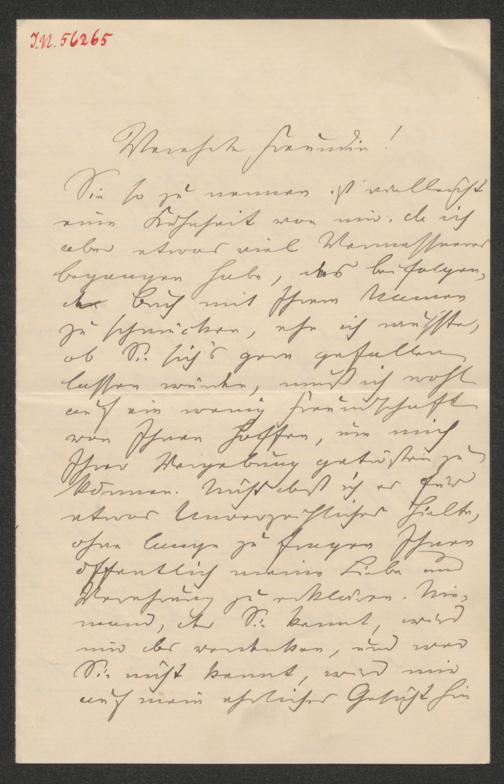 J.N. 56265
Verehrte Freundin!
Sie so zu nennen ist vielleicht
eine Kühnheit von mir. da ich
aber etwas viel Vermesseneres
begangen habe, das beifolgen,
de Buch mit Ihrem Namen
zu schmücken, ehe ich wußte,
ob Sie sich's gern gefallen
lassen würden, muß ich wohl
auf ein wenig Freundschaft
von Ihnen hoffen, um mich
Ihrer Vergebung getrösten zu
können. Nicht daß ich es für
etwas Unverzeihliches hielte,
ohne lange zu fragen Ihnen
öffentlich meine Liebe und
Verehrung zu erklären. Nie-
mand, der Sie kennt, wird
mir das verdenken, und wer
Sie nicht kennt, wird mir
auf mein ehrliches Gesicht hin